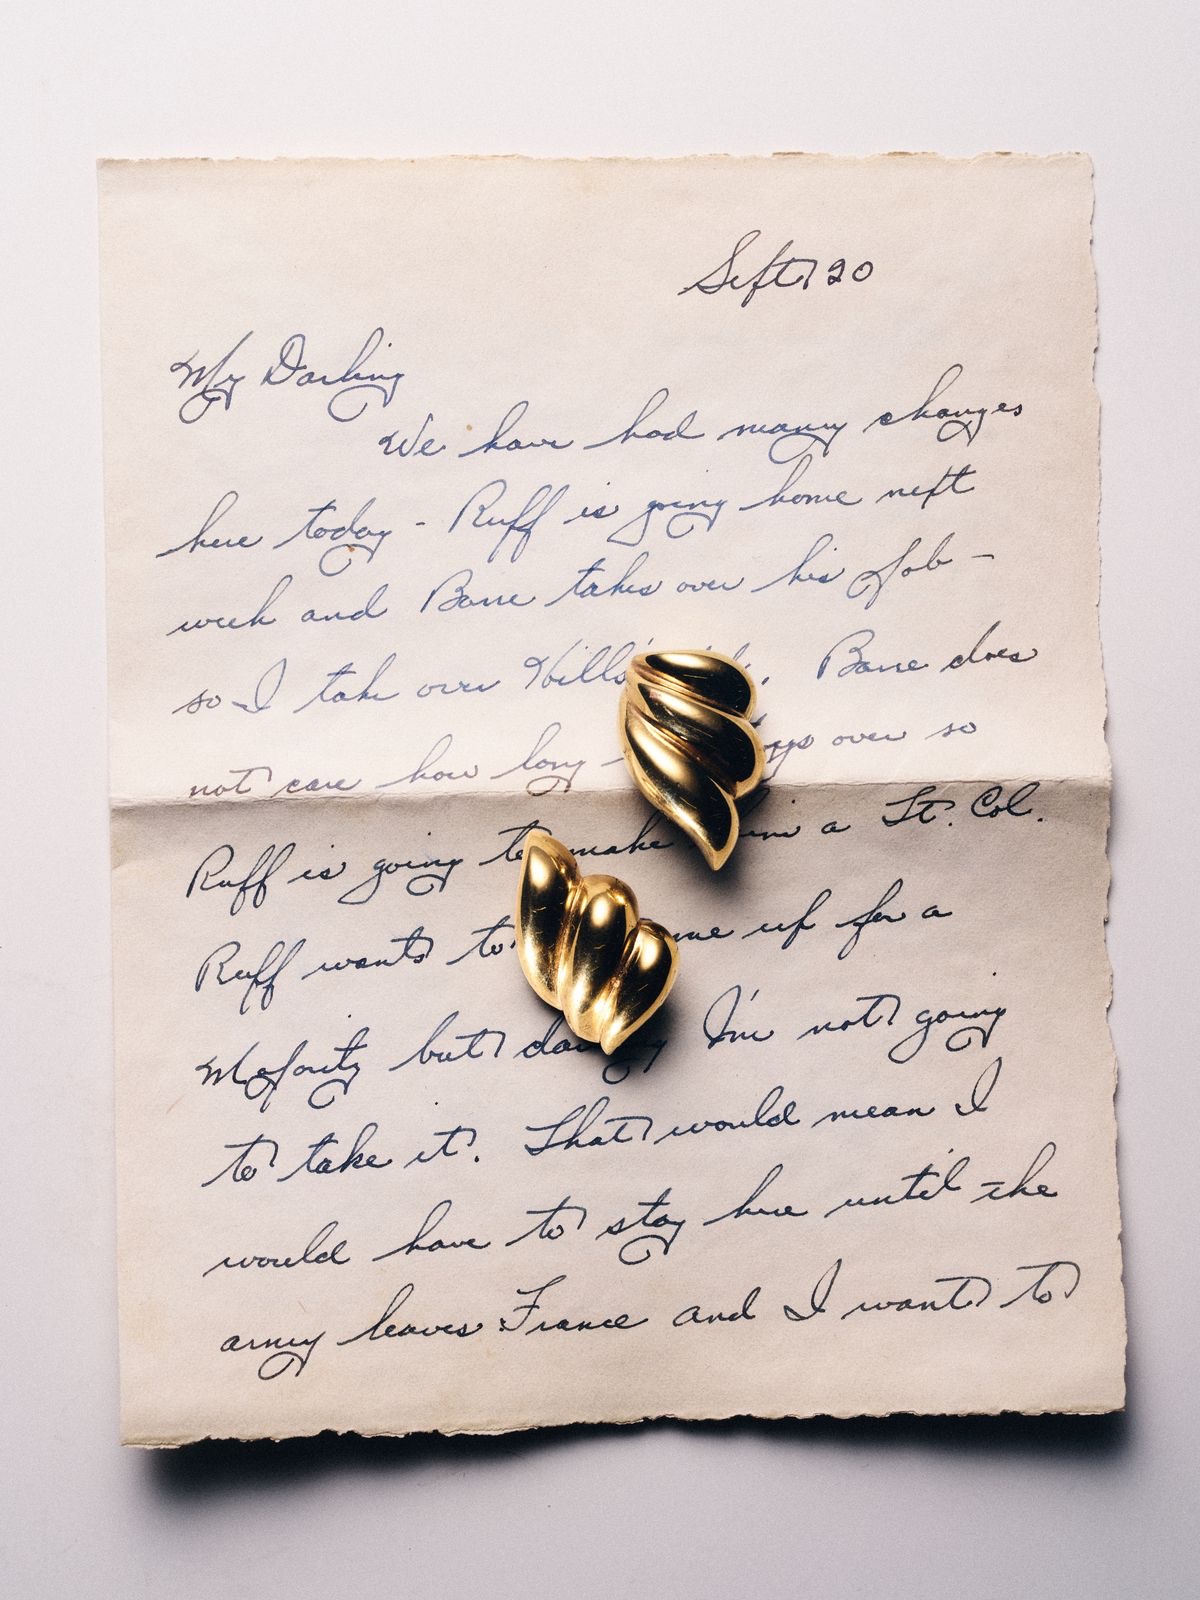 Sept 20
My Darling
We have had many changes
here today - Ruff is going home next
week and Bane takes over his job -
so I take over Hills'. Bane does
not care how long over so
Ruff is going to make him a Lt. Col.
Ruff wants to me up for a
Majority but darling I'm not going
to take it. That would mean I
would have to stay here until the
army leaves France and I want to